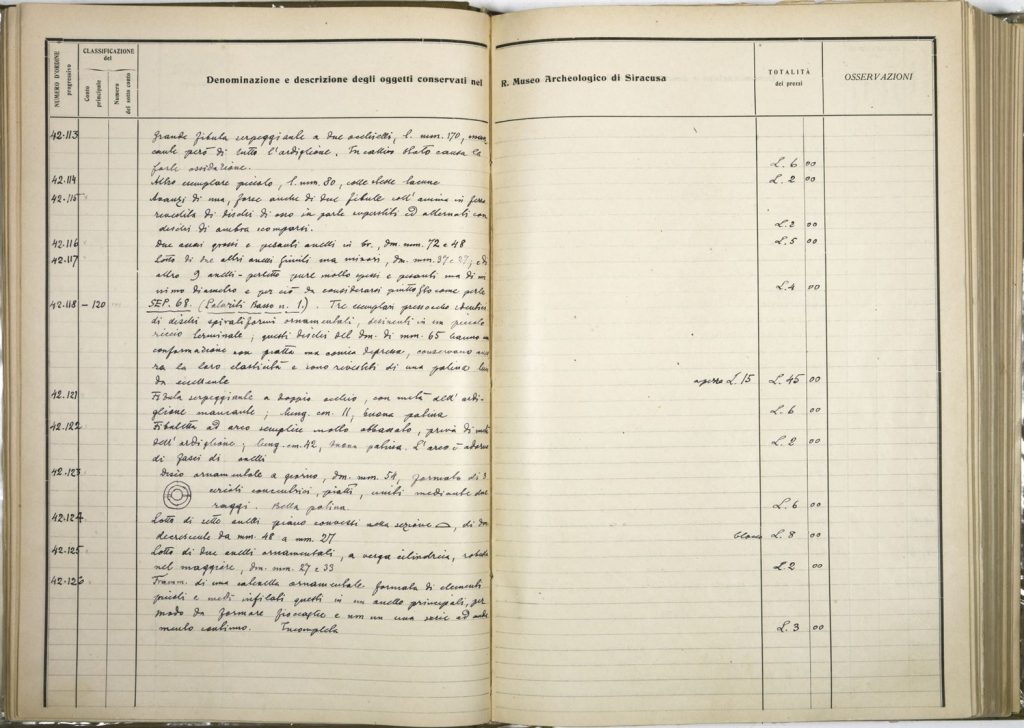 NUMERO D'ORDINE progressivo
CLASSIFICAZIONE del
Conto principale
Numero del sotto conto
Denominazione e descrizione degli oggetti conservati nel R. Museo Archeologico di Siracusa
TOTALITÀ dei prezzi
OSSERVAZIONI
42.113 Grande fibula serpeggiante a due occhielli, l. mm. 170, man
cante però di tutto l'ardiglione. In cattivo stato causa la
forte ossidazione. L. 6 00
42.114 Altro esemplare piccolo, l. mm. 80, colle stesse lacune L. 2 00
42.115 Avanzi di una, forse anche di due fibule coll'anima in ferro
rivestita di dischi di osso in parte superstiti ed alternati con
dischi di ambra scomparsi. L. 2 00
42.116 Due assai grossi e pesanti anelli in br., dm. mm. 72 e 48 L. 5 00
42.117 Lotto di due altri anelli simili ma minori, dm. mm. 37 e 37; e di
altro 9 anelli-perlette pure molto spessi e pesanti ma di mi
nimo diametro e per ciò da considerarsi piuttosto come perle L. 4 00
42.118 - 120 SEP. 68. ( Basso n. 1.) Tre esemplari pressochè identici
di dischi spiraliformi ornamentali, desinenti in un piccolo
riccio terminale; questi dischi del dm. di mm. 65 hanno una
conformazione non piatta ma conica depressa, conservano anco
ra la loro elasticità e sono rivestiti di una patina
da eccellente a pezzo L. 15 L. 45 00
42.121 Fibula serpeggiante a doppio occhio, con metà dell'ardi-
glione mancante; lung. cm. 11, buona patina L. 6 00
42.122 Fibuletta ad arco semplice molto abbassato, priva di metà
dell'ardiglione; lung. cm. 42, buona patina. L'arco è adorno L. 2 00
di fasci di anelli
42.123 Disco ornamentale a giorno, dm. mm. 54, formato di 3
circoli concentrici, piatti, uniti mediante due
raggi. Bella patina. L. 6 00
42.124 Lotto di sette anelli piano convessi nella sezione, di dm.
decrescente da mm. 48 a mm. 27 blocco L. 8 00
42.125 Lotto di due anelli ornamentali, a verga cilindrica,
nel maggiore, dm. mm. 27 e 33 L. 2 00
42.126 Framm. di una catenella ornamentale formata di elementi
piccoli e medi infilati questi in un anello principali, per
modo da formare e
mento continuo. Incompleta L. 3 00